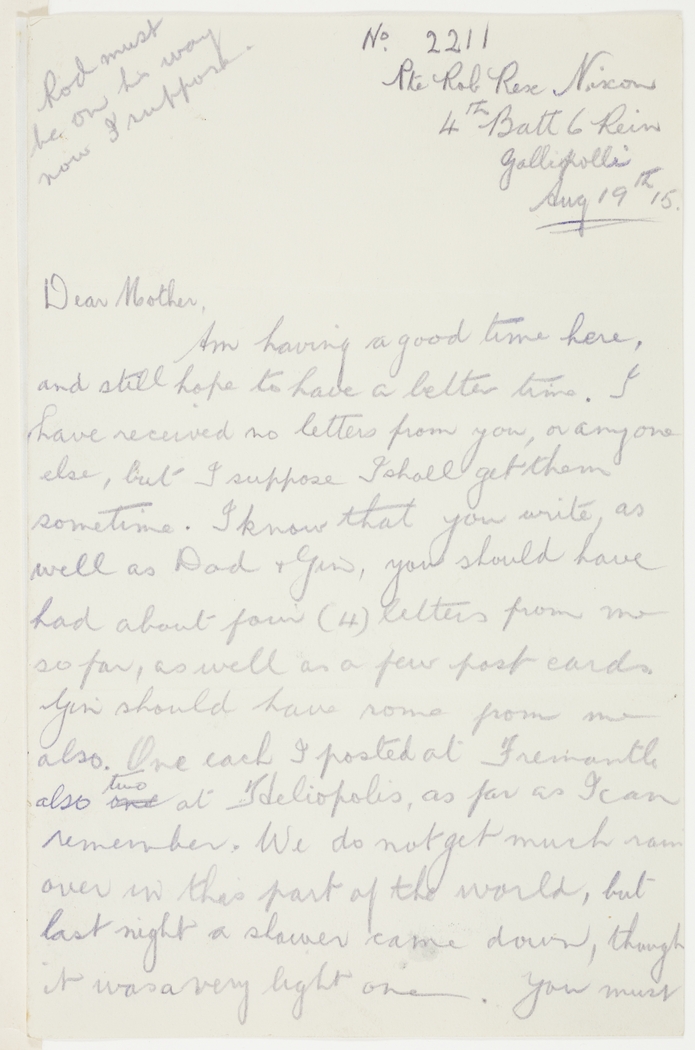 Rod must
be on his way
now I suppose.
No. 2211
Pte Rob Rex Nixon
4TH Batt 6 Rein
Gallipolli
Aug 19th 15.
Dear Mother,
Am having a good time here,
and still hope to have a better time. I
have received no letters from you, or anyone
else, but I suppose I shall get them
sometime. I know that you write, as
well as Dad & Gin, you should have
had about four (4) letters from me
so far, as well as a few post cards
Gin should have some from me
also. One each I posted at Fremantle
also one two at Heliopolis, as far as I can
remember. We do not get much rain
over in this part of the world, but
last night a shower came down, though
it was a very light one. You must